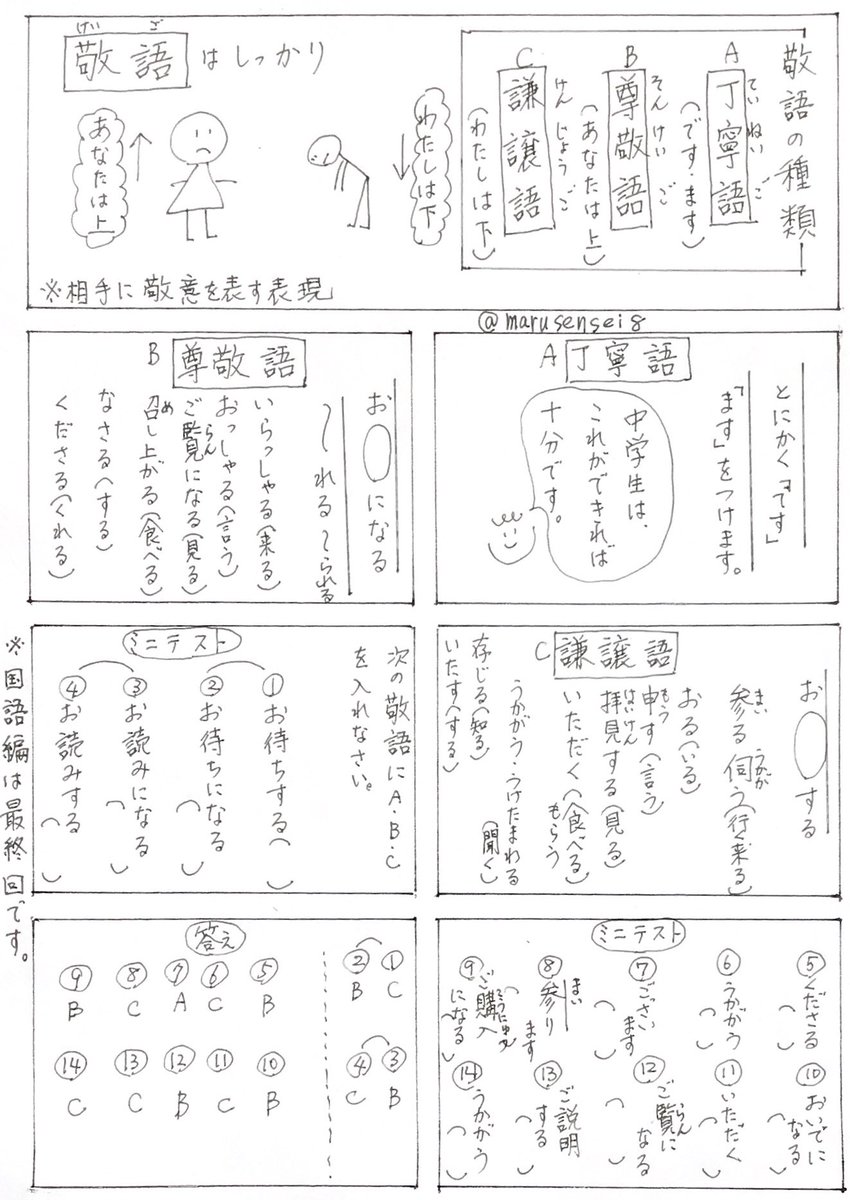 敬語の種類
A 丁寧語
ていねいご
(です・ます)
B 尊敬語
そんけいご
(あなたは上)
C 謙譲語
けんじょうご
(わたしは下)
敬語はしっかり
けいご
わたしは下
あなたは上
※相手に敬意を表す表現
@marusensei8
A 丁寧語
とにかく「です」
「ます」をつけます。
中学生は、
これができれば
十分です。
B 尊敬語
お○になる
〜れる 〜られる
いらっしゃる(来る)
おっしゃる(言う)
ご覧になる(見る)
らん
召し上がる(食べる)
め
なさる(する)
くださる(くれる)
C 謙譲語
お○する
参る 伺う(行く来る)
まい うかが
おる(いる)
申す(言う)
もう
拝見する(見る)
はいけん
いただく(食べる)
もらう
うかがう・うけたまわる
(聞く)
存じる(知る)
いたす(する)
ミニテスト
次の敬語にA・B・C
を入れなさい。
①お待ちする( )
②お待ちになる( )
③お読みになる( )
④お読みする( )
※国語編は最終回です。
ミニテスト
⑤くださる( )
⑥うかがう( )
⑦ございます( )
⑧参ります( )
まい
⑨ご購入になる( )
こうにゅう
⑩おいでになる( )
⑪いただく( )
⑫ご覧になる( )
らん
⑬ご説明する( )
⑭うかがう( )
答え
①C
②B
③B
④C
⑤B
⑥C
⑦A
⑧C
⑨B
⑩B
⑪C
⑫B
⑬C
⑭C